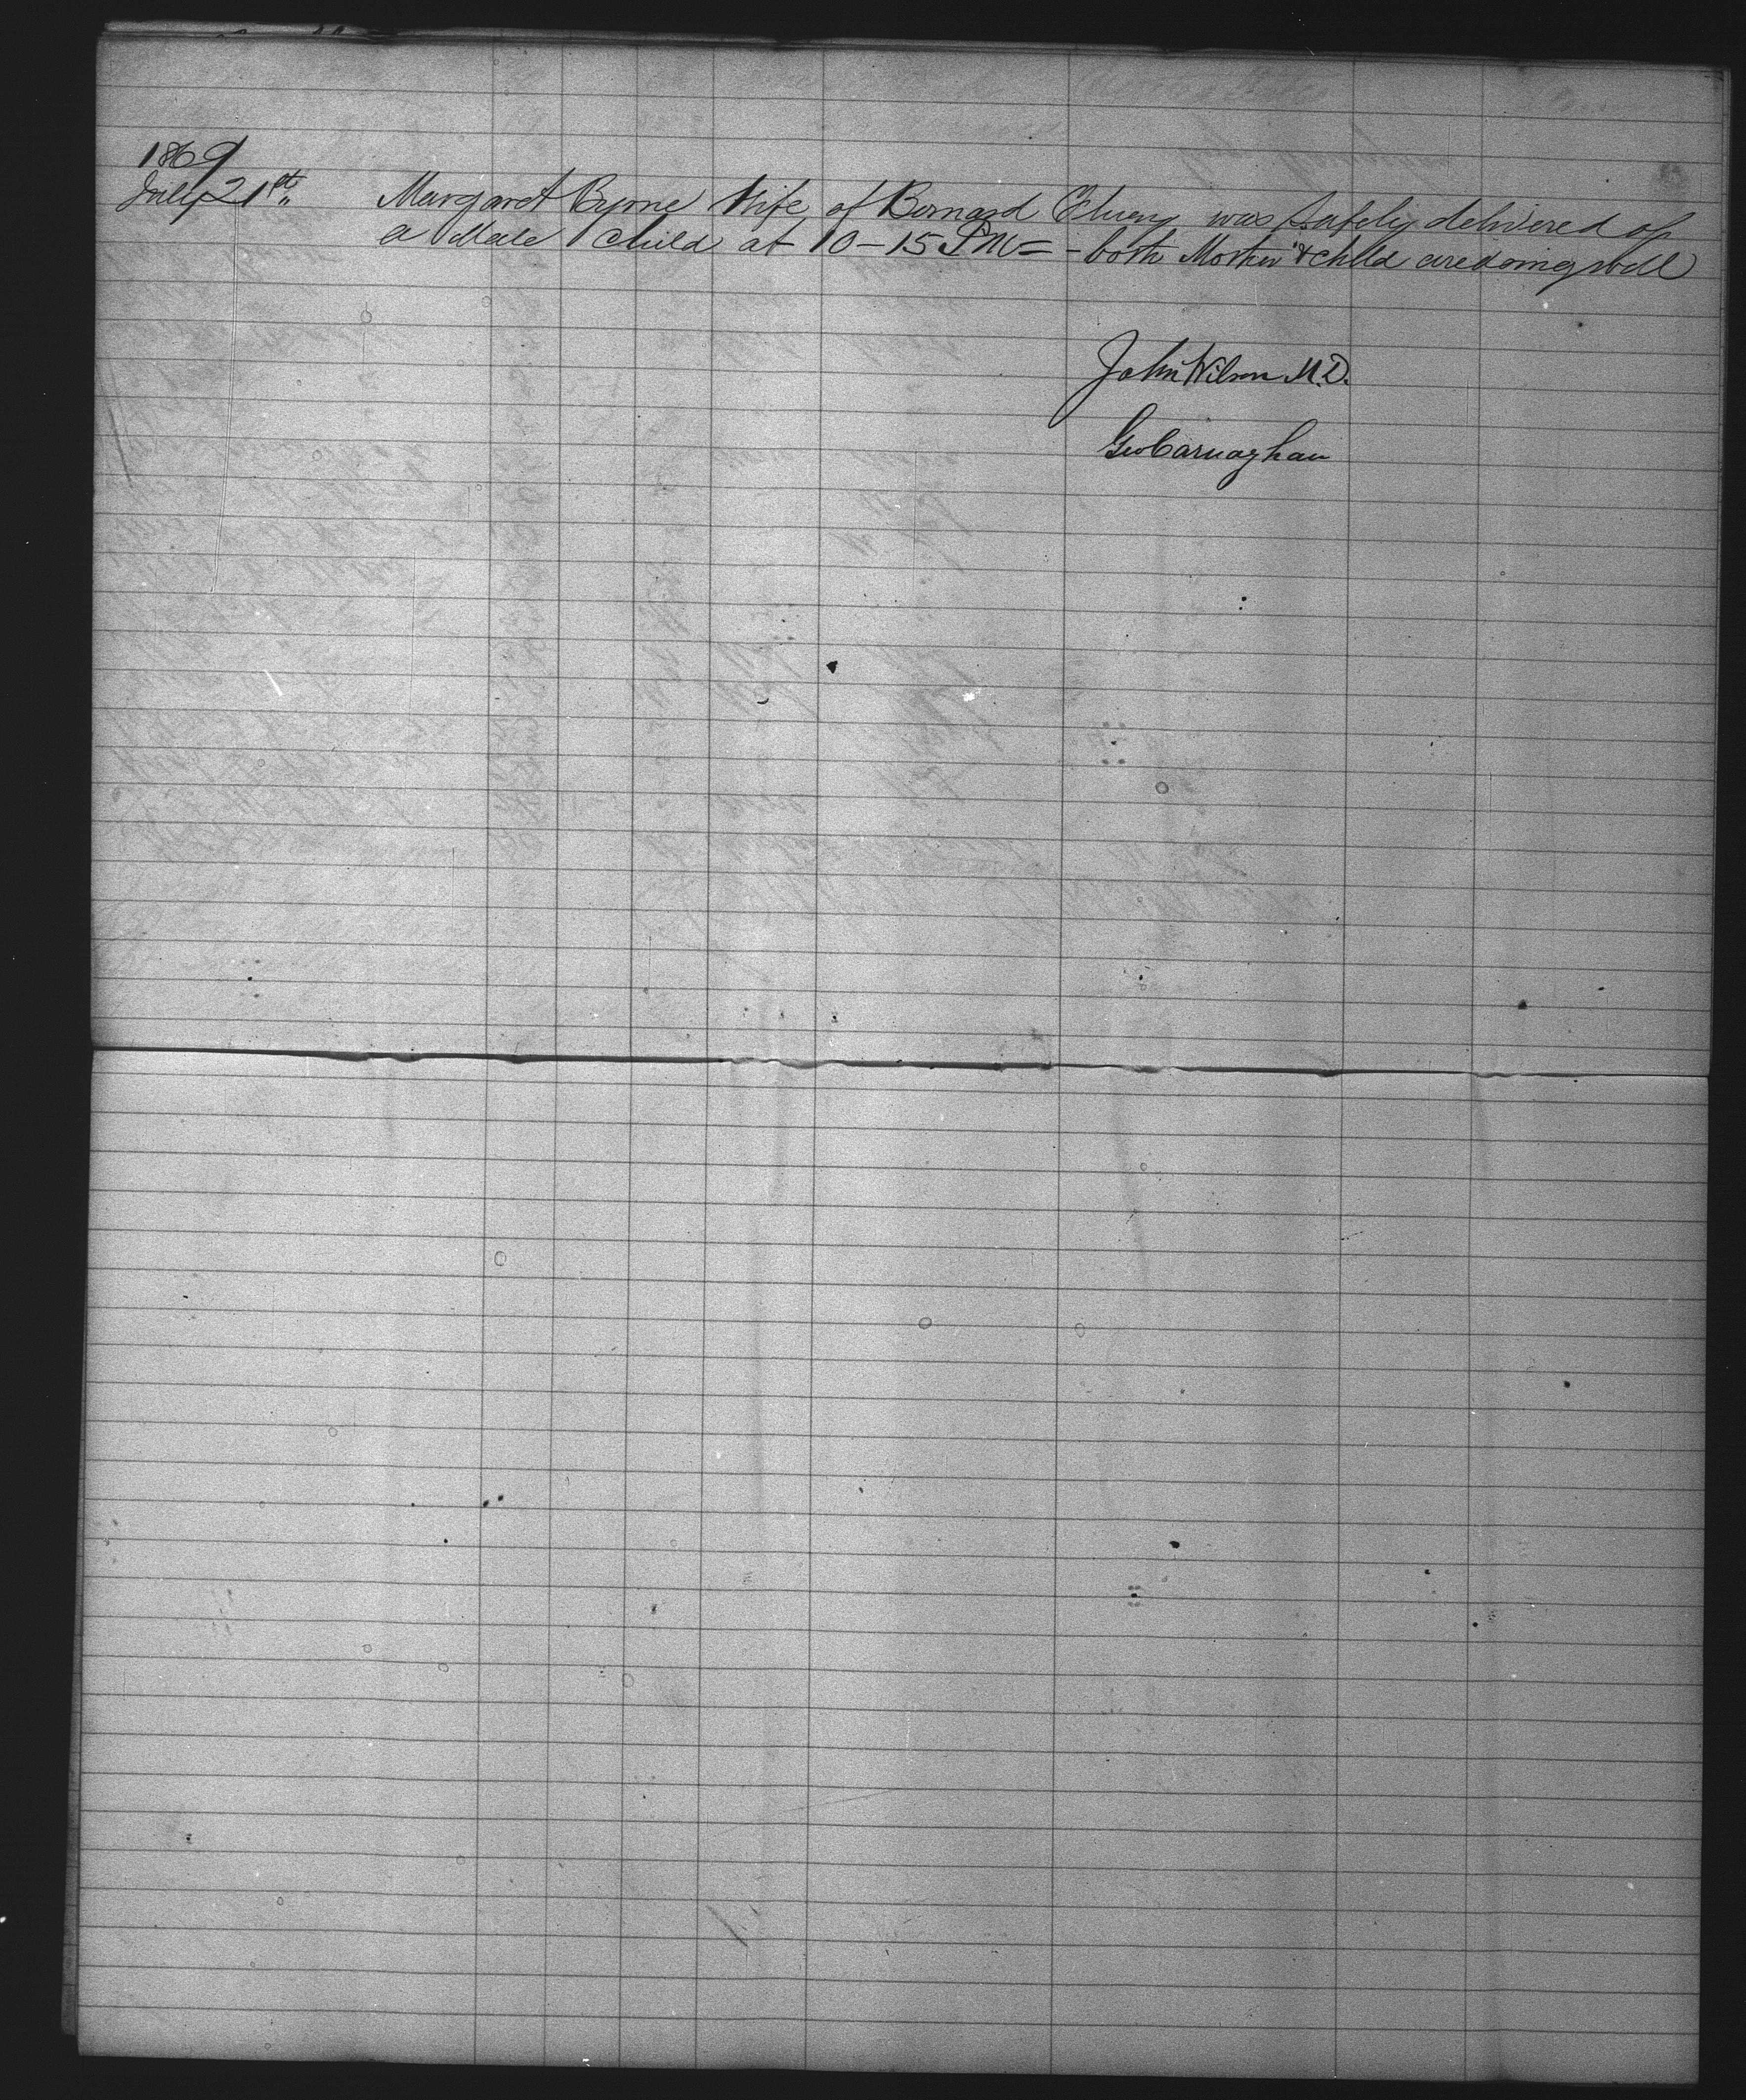 1869
July 21st Margaret Byrne Wife of Bernard was safely delivered of
a Male Child at 10-15 PM - both Mother & child are doing well
John Wilson M.D.
Geo Carnaghan